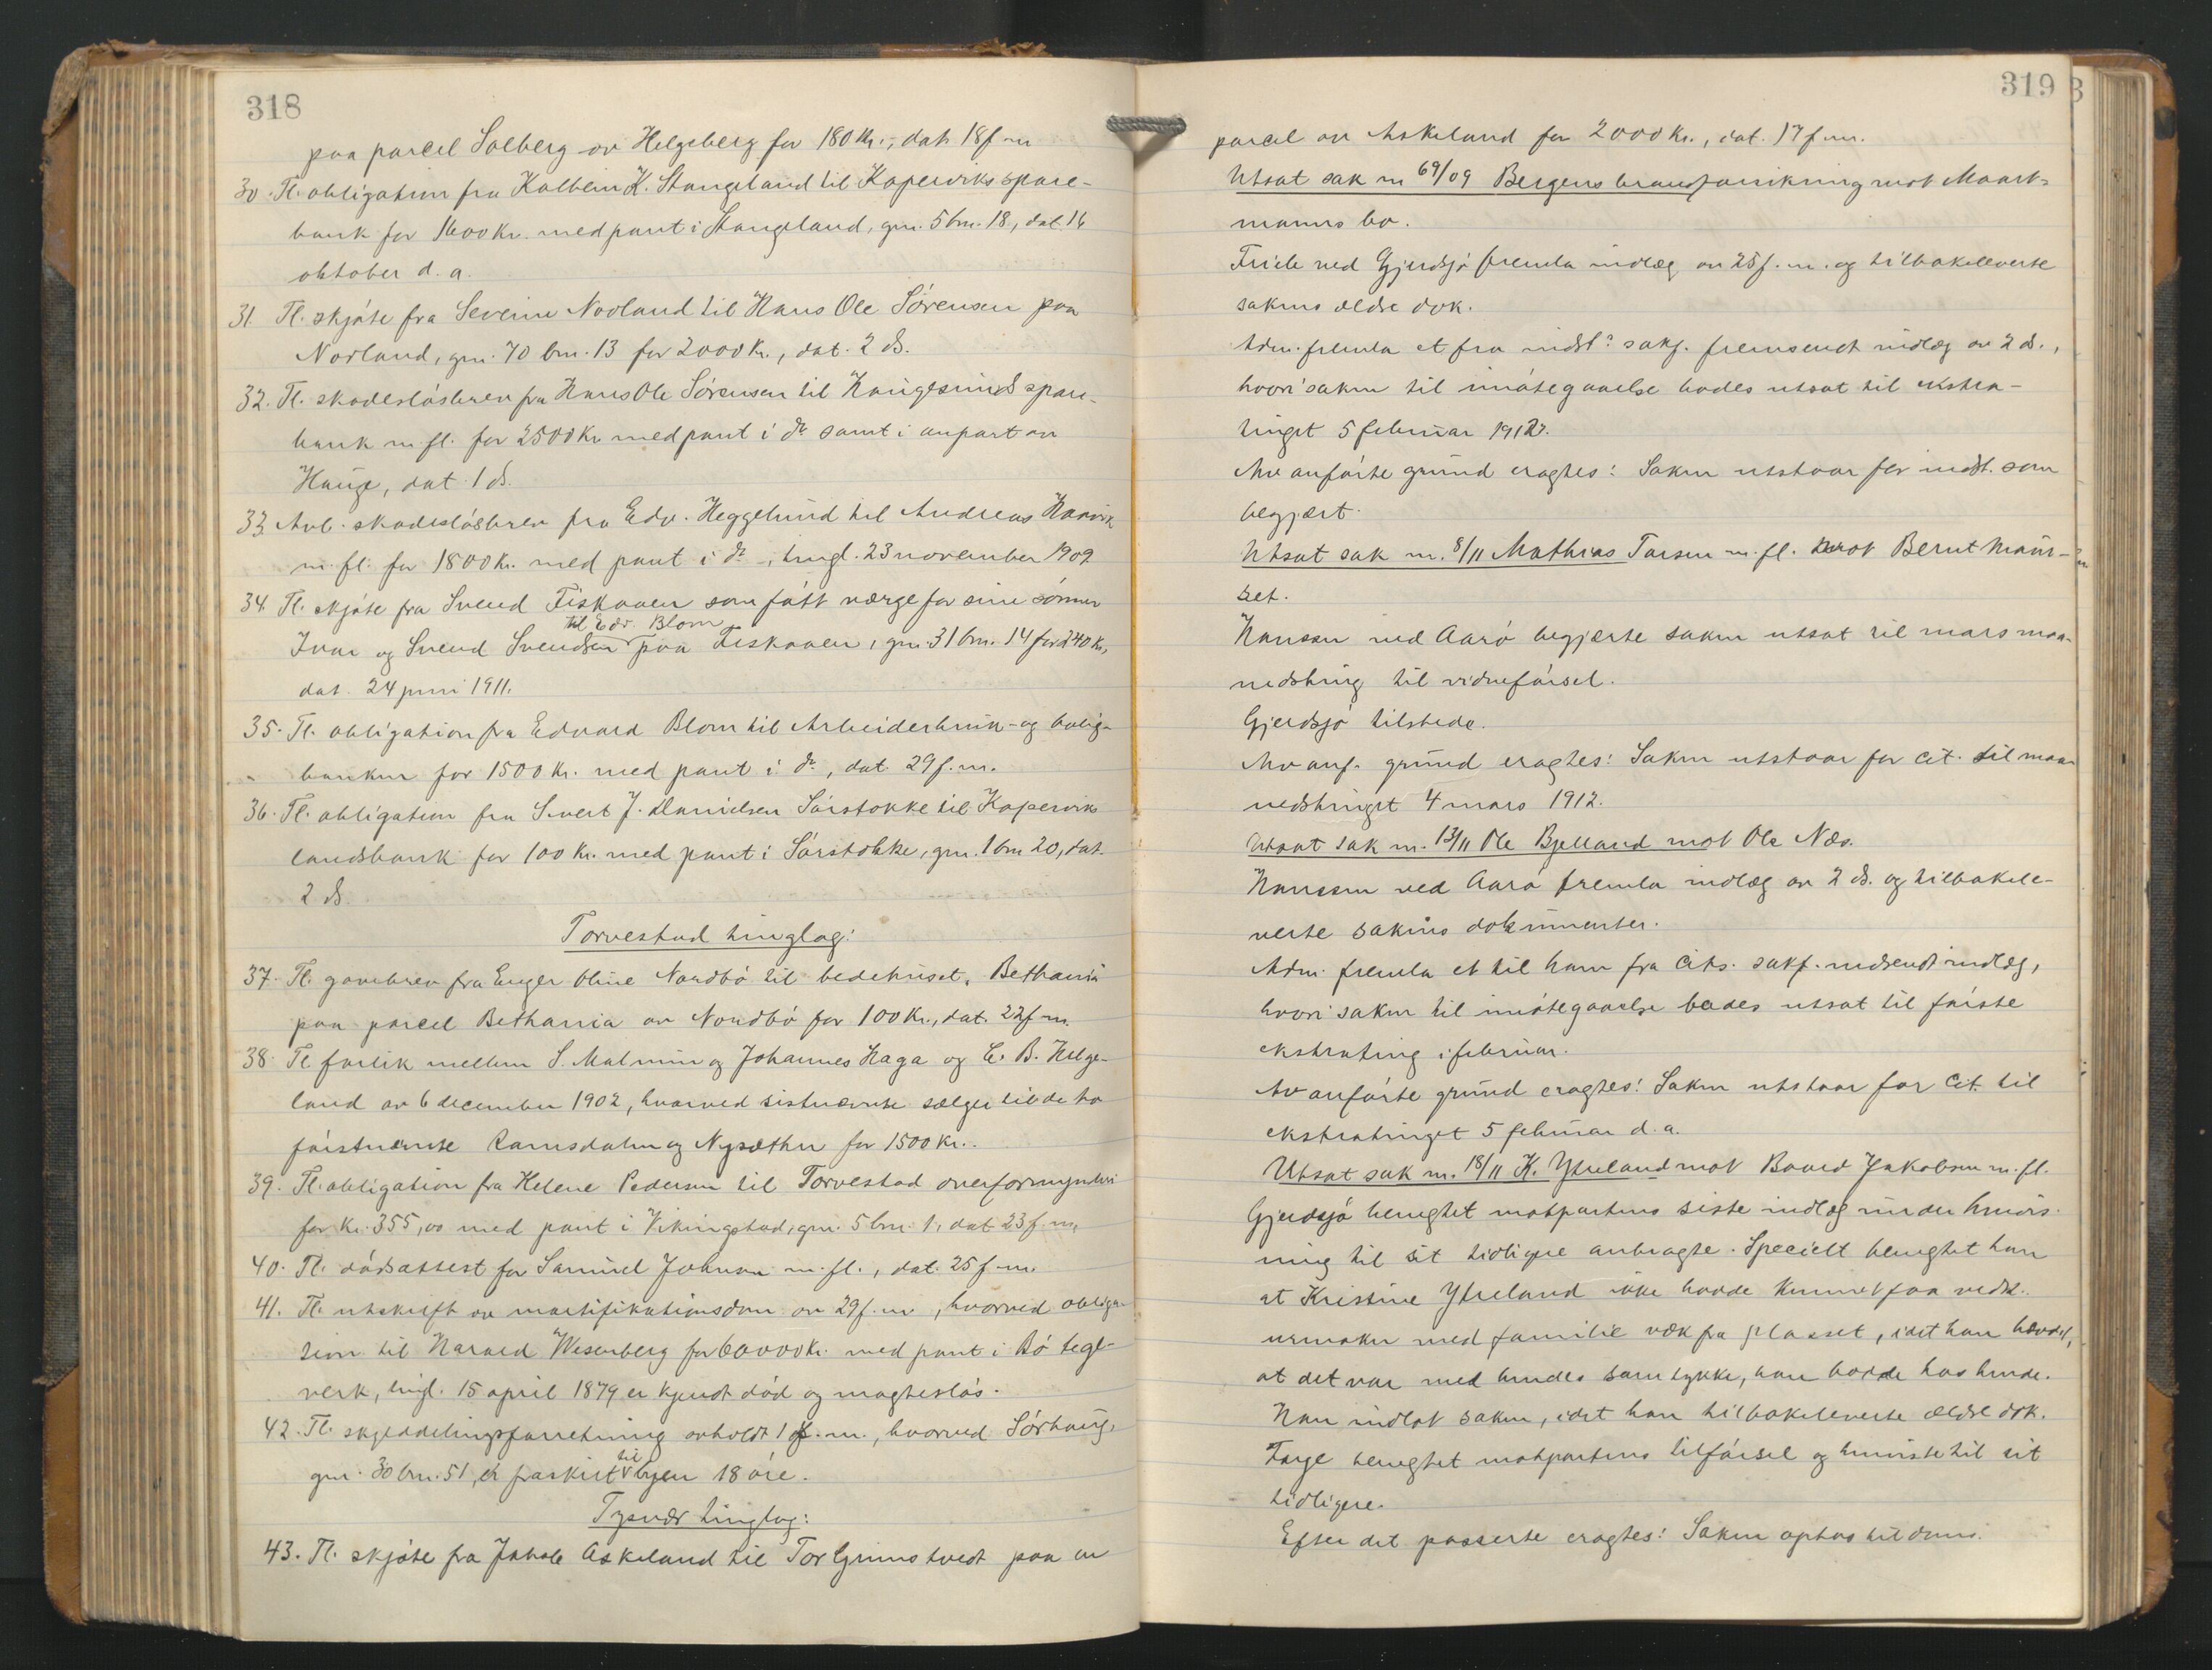 318
paa parcel Solberg av Helgeberg for 180 kr., dat. 18 f.m.
30. Tl. obligation fra Kolbein K. Stangeland til Kopervik spare-
bank for 1600 kr. med pant i Stangeland, gnr. 5 bnr. 18, dat. 16
oktober d. a.
31. Tl. skjøte fra Severine Norland til Hans Ole Sørensen paa
Norland, gnr. 70 bnr. 13 for 2000 kr., dat. 2 ds.
32. Tl. skadesløsbrev fra Hans Ole Sørensen til Haugesunds spare-
bank m. fl. for 2500 kr. med pant i do samt i anpart av
Hauge, dat. 1 ds.
33. Avl. skadesløsbrev fra Edv. Heggelund til Andreas Haavik
m. fl. for 1800 kr. med pant i do, tingl. 23 november 1909
34. Tl. skjøte fra Svend Fiskaaen som født værge for sine sønner
Ivar og Svend Svendsen til Edv. Blom paa Fiskaaen, gnr. 31 bnr. 14 for 240 kr.,
dat. 24 juni 1911.
35. Tl. obligation fra Edvard Blom til Arbeiderbruk- og bolig-
banken for 1500 kr. med pant i do, dat. 29 f. m.
36. Tl. obligation fra Sivert J. Danielsen Sørstokke til Kopervik
landsbank for 100 kr. med pant i Sørstokke, gnr. 1 bnr. 20, dat.
2 ds.
Torvestad tinglag:
37. Tl. gavebrev fra Enger Oline Nordbø til bedehuset, Bethania
paa parcel Bethania av Nordbø for 100 kr., dat. 22 f. m.
38. Tl. forlik mellem S. Malmin og Johannes Haga og C. B. Helge-
land av 6 december 1902, hvorved sistnævnte sælger til de to
førstnævnte Ramsdalen og Nysæther for 1500 kr.
39. Tl. obligation fra Helene Pedersen til Torvestad overformynderi
for kr. 355,00 med pant i Vikingstad, gnr. 5 bnr. 1, dat. 23 f. m.
40. Tl. dødsattest for Samuel Johnsen m. fl., dat. 25 f. m.
41. Tl. utskrift av mortifikationsdom av 29 f. m., hvorved obliga-
tion til Harald Wesenberg for 60000 kr. med pant i Bø tegl-
verk, tingl. 15 april 1879 er kjendt død og magtesløs.
42. Tl. skylddelingsforretning avholdt 1 f. m., hvorved Sørhaug,
gnr. 30 bnr. 51, er fraskilt til byen 18 øre.
Tysvær tinglag:
43. Tl. skjøte fra Jakob Askeland til Tor Grimstvedt paa en
319
parcel av Askeland for 2000 kr., dat. 17 f. m.
Utsat sak nr. 69/09 Bergens brandforsikring mot Maart-
manns bo.
Friele ved Gjerdsjø fremla indlæg av 28 f. m. og tilbakeleverte
sakens ældre dok.
Adm. fremla et fra indst. sakf. fremsendt indlæg av 2 ds.,
hvori saken til imøtegaaelse bades utsat til ekstra-
tinget 5 februar 1912.
Av anførte grund eragtes: Saken utstaar for indst. som
begjært.
Utsat sak nr. 8/11 Mathias Tarsen m. fl. mot Bernt Maur-
set.
Hanssen ved Aarø begjærte saken utsat til mars maa-
nedsting til vidneførsel.
Gjerdsjø tilstede.
Av anf. grund eragtes: Saken utstaar for cit. til maa-
nedstinget 4 mars 1912.
Utsat sak nr. 13/11 Ole Bjelland mot Ole Næs.
Hanssen ved Aarø fremla indlæg av 2 ds. og tilbakele-
verte sakens dokumenter.
Adm. fremla et til ham fra cits. sakf. indsendt indlæg,
hvori saken til imøtegaaelse bades utsat til første
ekstrating i februar.
Av anførte grund eragtes: Saken utstaar for cit. til
ekstratinget 5 februar d. a.
Utsat sak nr. 18/11 K. Ytreland mot Baard Jakobsen m. fl.
Gjerdsjø benegtet motpartens siste indlæg under henvis-
ning til sit tidligere anbragte. Specielt benegtet han
at Kristine Ytreland ikke hadde kunnet faa
urmaker med familie væk fra plasset, idet han hævdet,
at det var med hendes samtykke, han bodde hos hende.
Han indlot saken, idet han tilbakeleverte ældre dok.
Farge benegtet motpartens tilførsel og henviste til sit
tidligere.
Efter det passerte eragtes: Saken optas til doms.